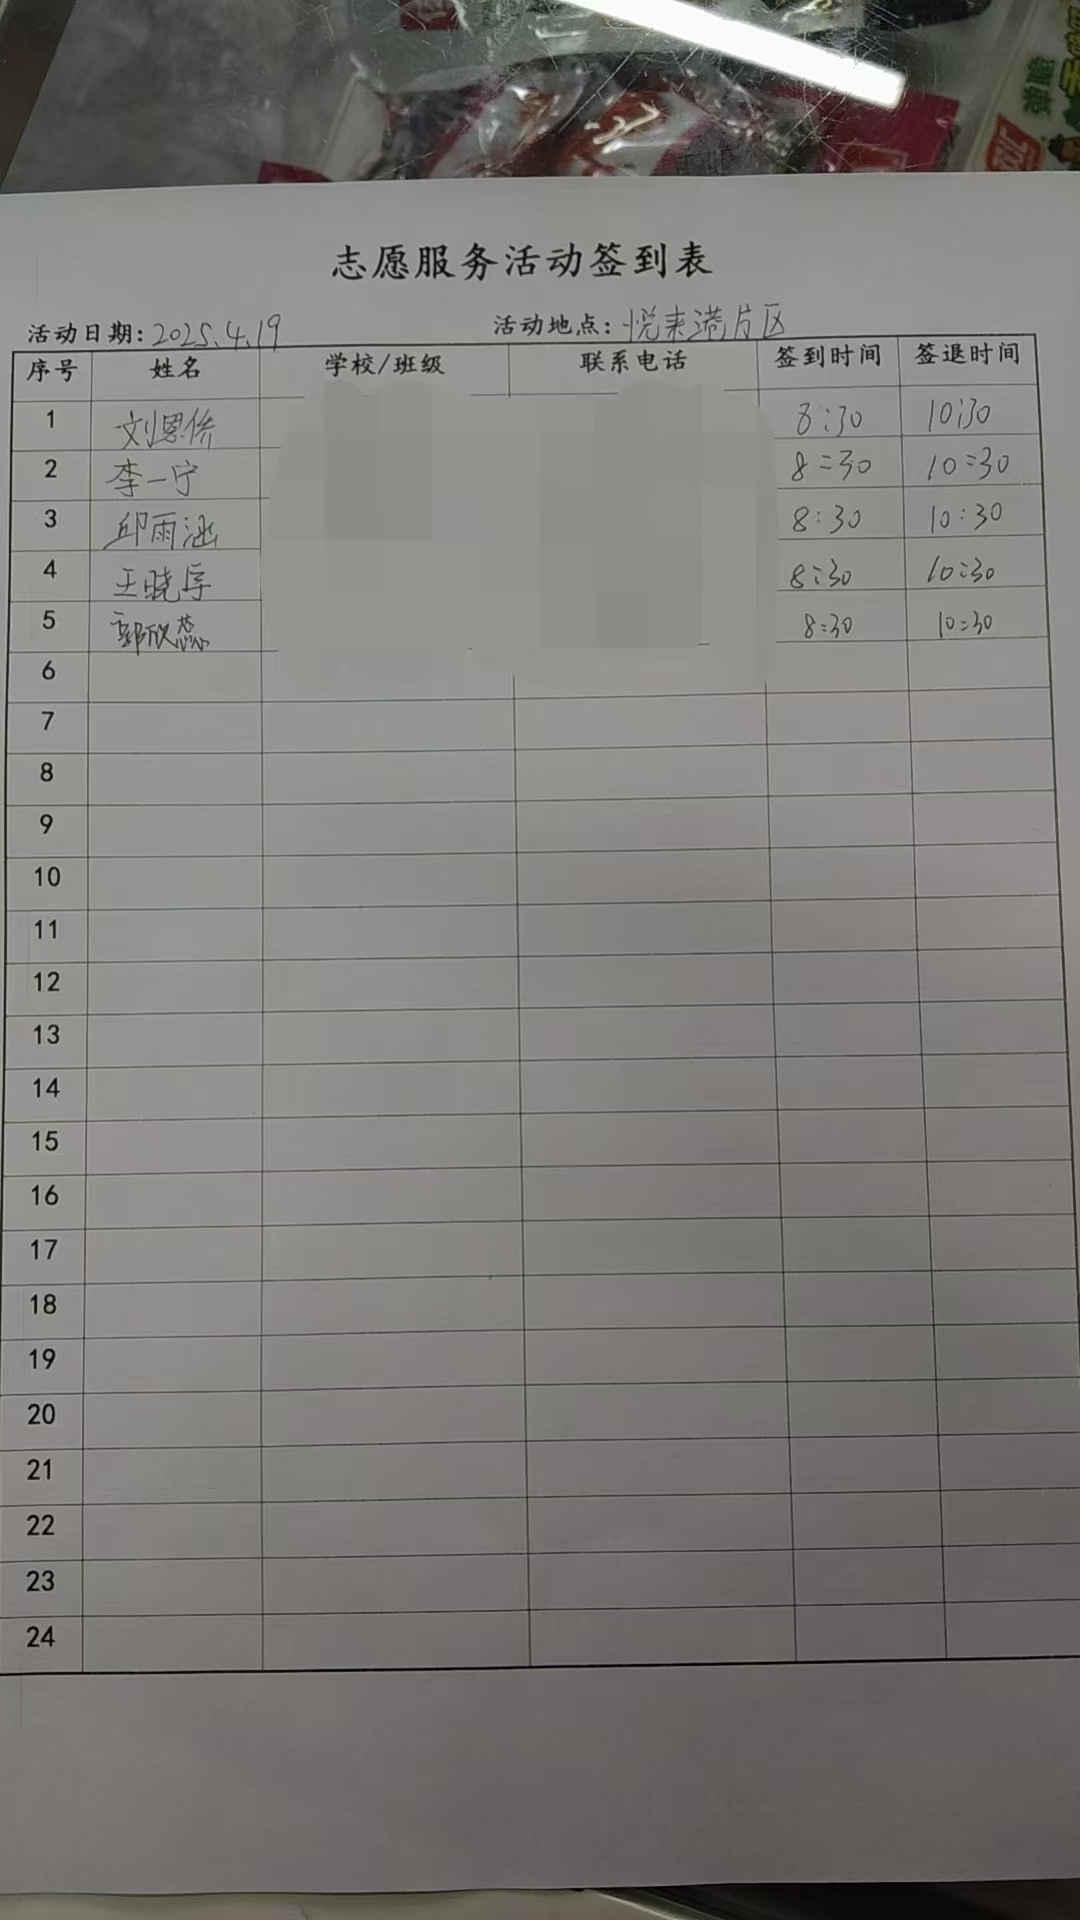 志愿服务活动签到表
活动日期: 2025.4.19 活动地点: 悦来港片区
序号 姓名 学校/班级 联系电话 签到时间 签退时间
1 刘恩侨 8:30 10:30
2 李一宁 8:30 10:30
3 邱雨涵 8:30 10:30
4 王晓宇 8:30 10:30
5 郭欣蕊 8:30 10:30
6
7
8
9
10
11
12
13
14
15
16
17
18
19
20
21
22
23
24